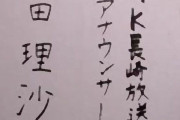 K長崎放送
アナウンサー
田理沙